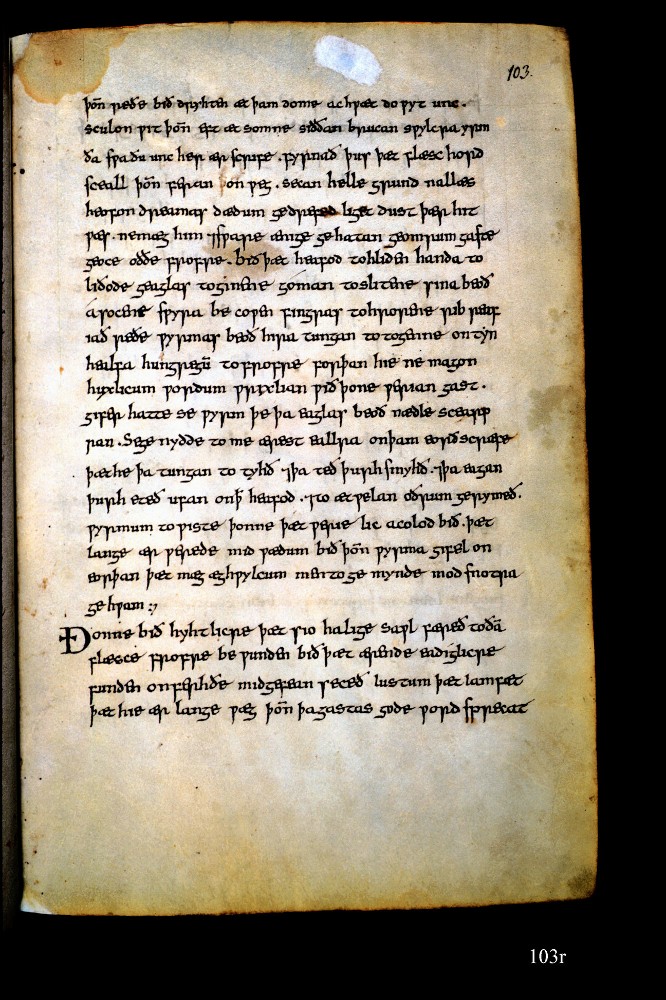 103.
þoñ reðe bið dryhten æt þam dome ac hƿæt do ƿyt unc.
sculon ƿit þoñ eft æt somne siððan brucan sƿylcra yrm
ða sƿa ðu unc her ær scrife. fyrnað þus þæt flæsc hord
sceall þoñ feran on ƿeg. secan helle grund nallæs
heofon dreamas dædum gedrefed liget dust þær hit
ƿæs. ne mæg him ⁊sƿare ænige gehatan geomrum gaste
geoce oððe frofre. bið þæt heafod tohliden handa to
liðode geaglas toginene goman toslitene sina beoð
asocene sƿyra becoƿen fingras tohrorene rib reaf
iað reðe ƿyrmas beoð hira tungan totogenne on tyn
healfa hungregū to frofre forþan hie ne magon
huxlicum ƿordum ƿrixlian ƿið þone ƿerian gast.
gifer hatte se ƿyrm þe þa eaglas beoð nædle scearp
ran. Se genydde to me ærest eallra on þam eorðscræfe
þæt he þa tungan to tyhð ⁊þa teð þurh smyhð. ⁊þa eagan
þurh eteð ufan on þ̄ heafod. ⁊to ætƿelan oðrum gerymeð.
ƿyrmum to ƿiste þonne þæt ƿerie lic acolod bið. þæt
lange ær ƿerede mid ƿædum bið þoñ ƿyrma gifel on
eorþan þæt mæg æghƿylcum men to gemynde mod snotra
gehƿam :⁊
Ðonne bið hyhtlicre þæt sio halige saƿl færeð to ðā
flæsce frofre beƿunden bið þæt ærende eadiglicre
funden on ferhðe mid gefean seceð lustum þæt lamfæt
þæt hie ær lange ƿæg þoñ þa gastas gode ƿord sprecat
103r